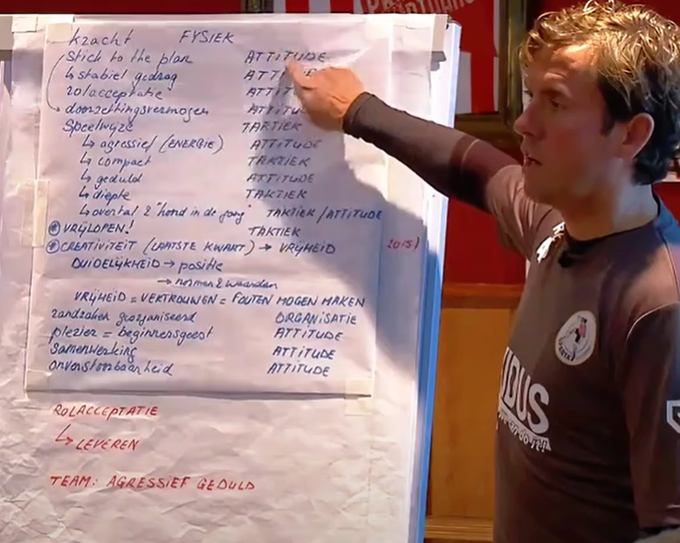 kracht FYSIEK
Stick to the plan ATTITUDE
↳ stabiel gedrag
rolacceptatie
doorzettingsvermogen
Speelwijze TAKTIEK
↳ agressief (ENERGIE) ATTITUDE
↳ compact TAKTIEK
↳ geduld ATTITUDE
↳ diepte TAKTIEK
↳ overtal 2 "hond in de gang" TAKTIEK / ATTITUDE
VRIJLOPEN! TAKTIEK
CREATIVITEIT (LAATSTE KWART) → VRIJHEID
DUIDELIJKHEID → positie
→ normen & waarden
VRIJHEID = VERTROUWEN = FOUTEN MOGEN MAKEN
randzaken georganiseerd ORGANISATIE
plezier = beginnersgeest ATTITUDE
samenwerking ATTITUDE
onverstoorbaarheid ATTITUDE
ROLACCEPTATIE
↳ LEVEREN
TEAM: AGRESSIEF GEDULD